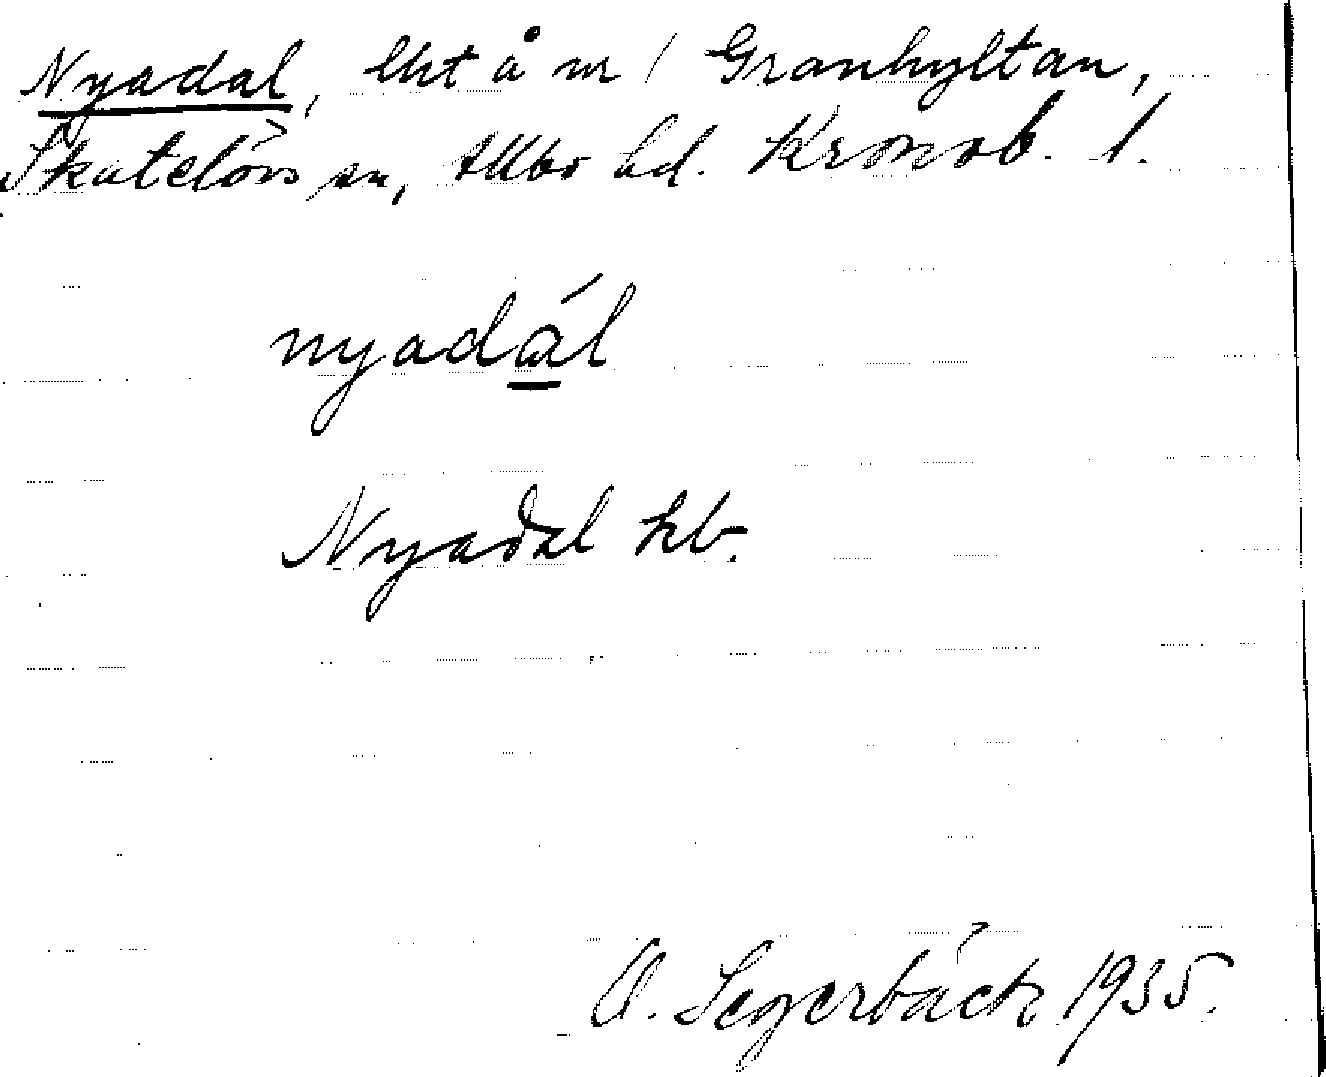 Nyadal, lht å nr 1 Granhyltan,
Skatelövs sn, Allbo hd. Kronob. l.
nyadál
Nyadal kb.
A. Segerbäck 1935.